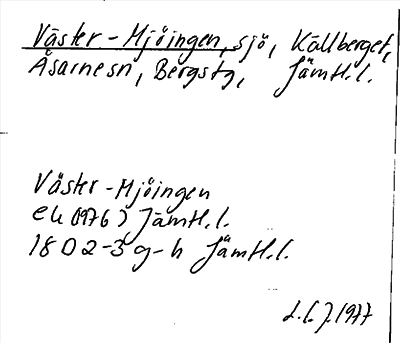 Väster-Mjöingen, sjö, Källberget,
Åsarnesn, Bergstg, Jämtl.l.
Väster-Mjöingen
ek (1976) Jämtl.l.
18D 2-3 g-h Jämtl.l.
1977